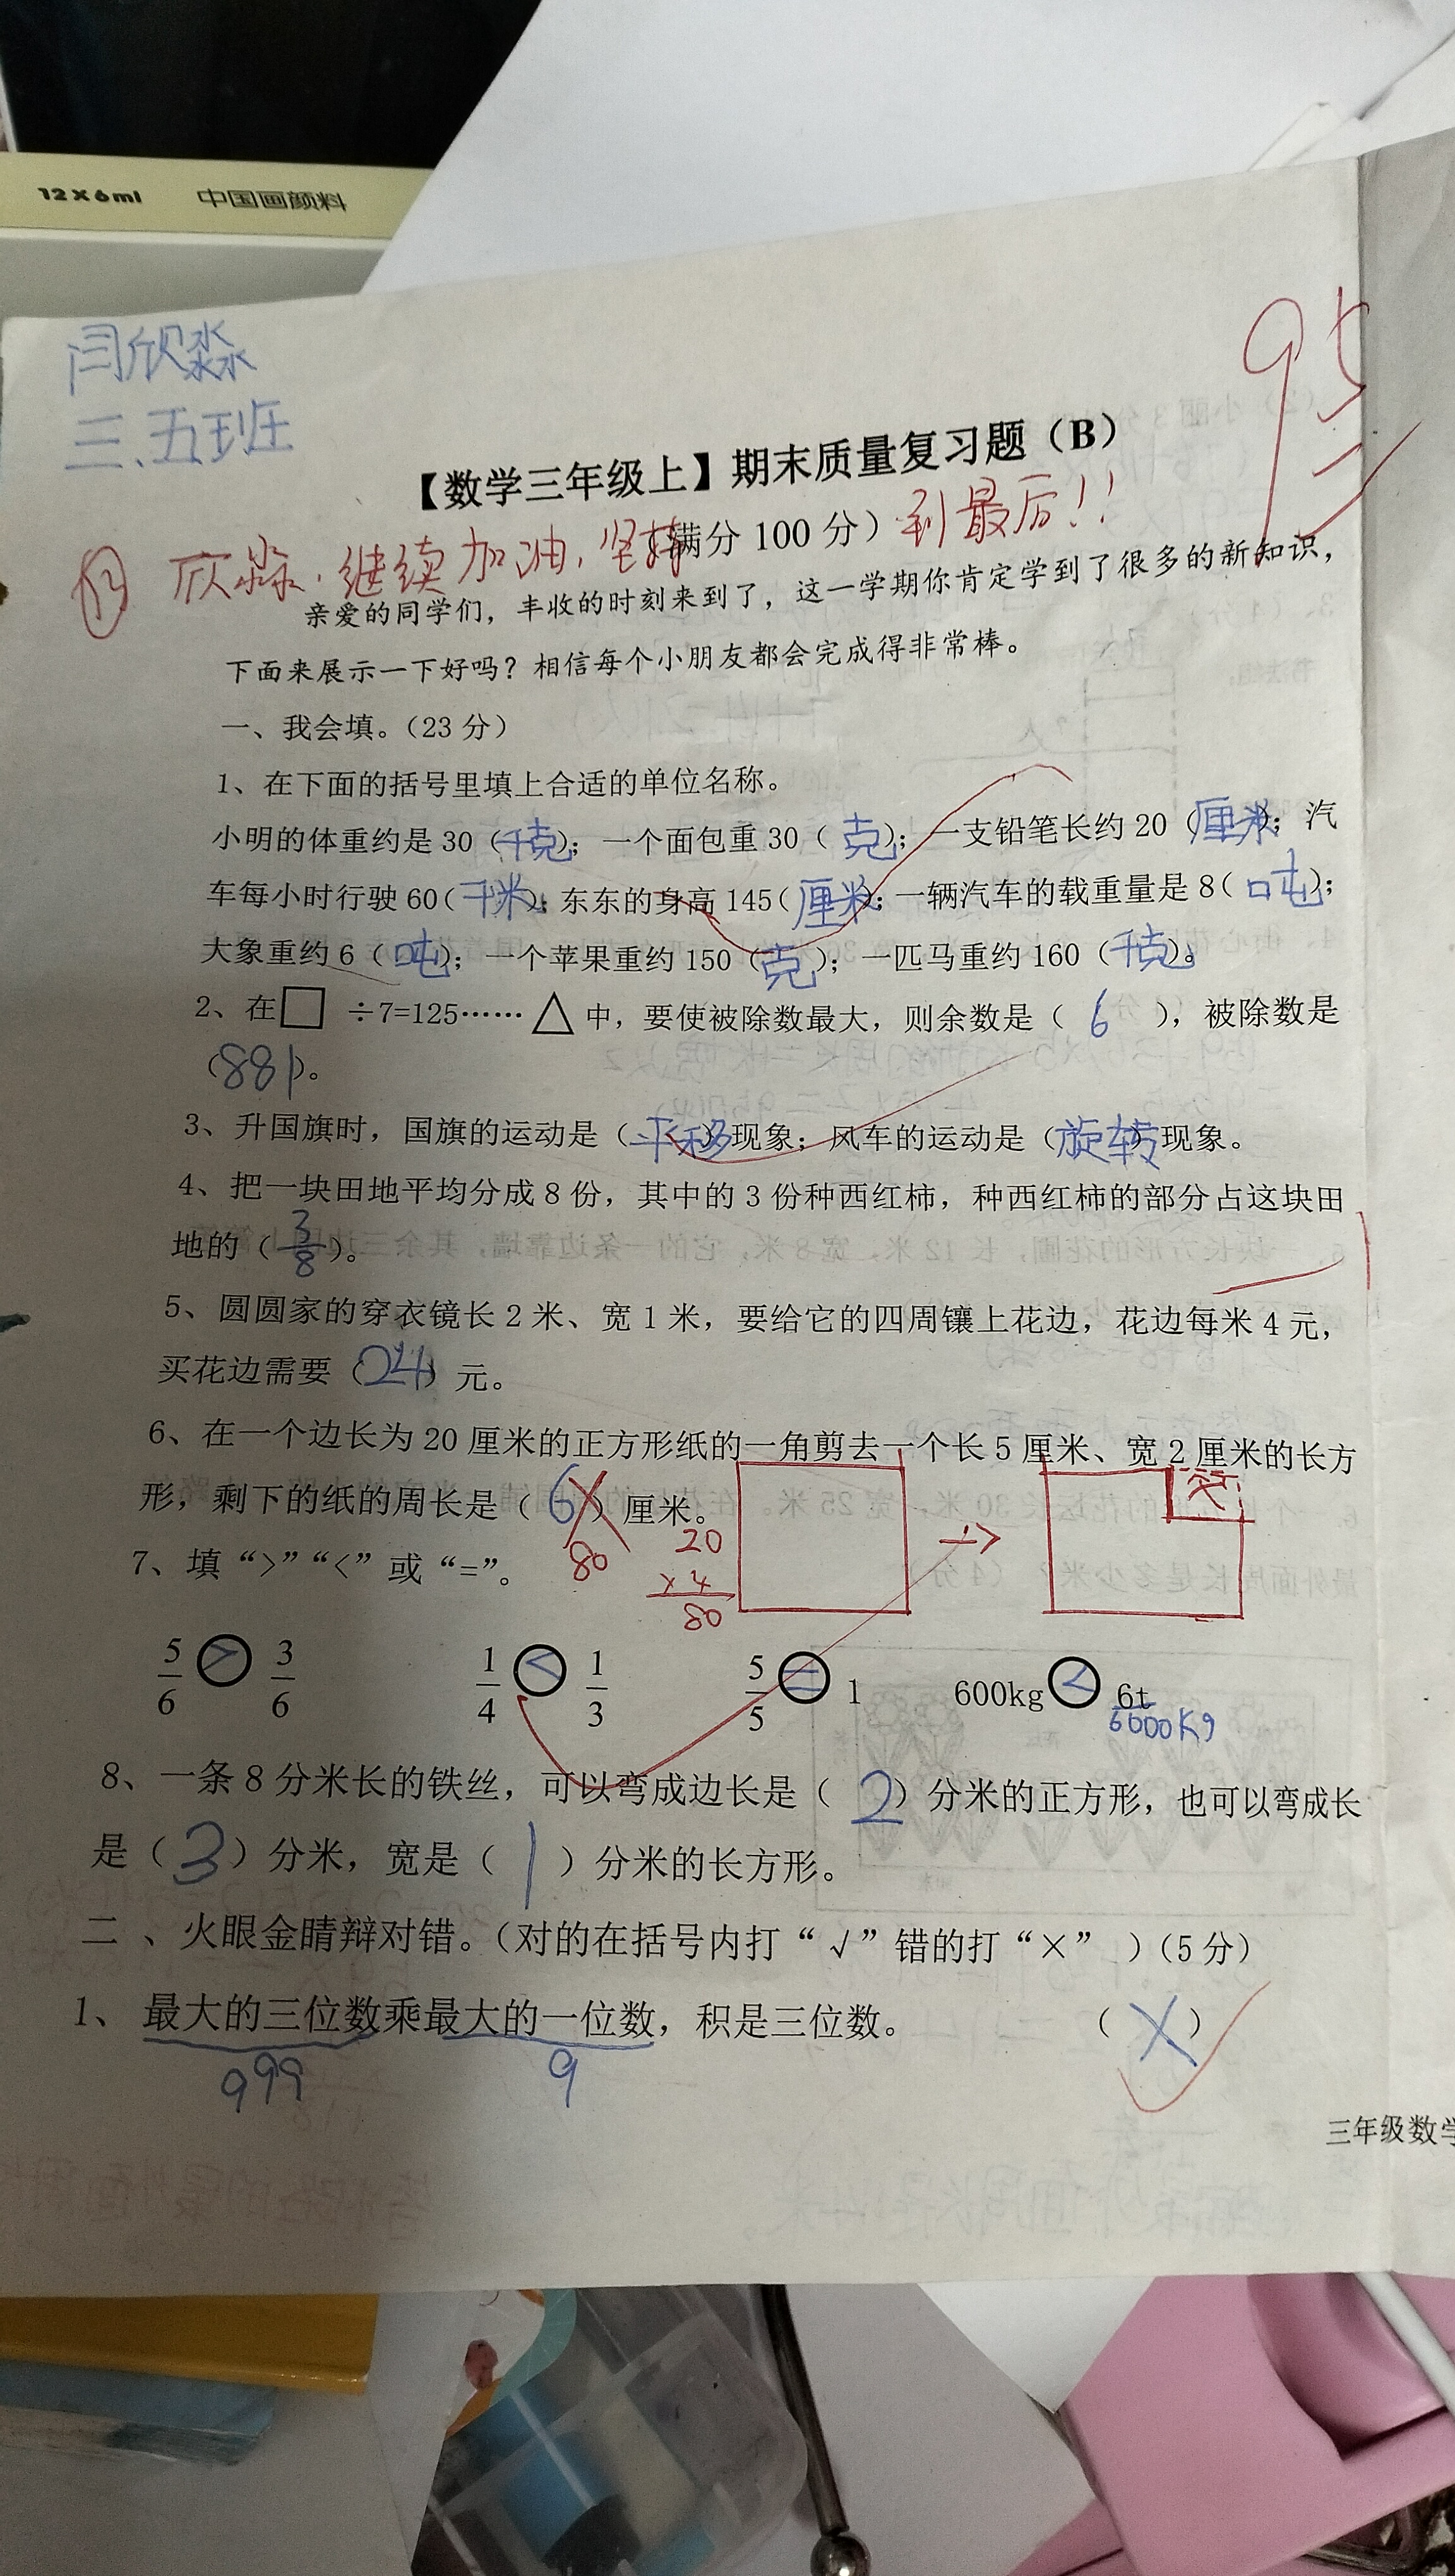 12×6ml 中国画颜料
闫欣淼
三.五班
95
【数学三年级上】期末质量复习题（B）
满分 100 分）
欣淼.继续加油,坚持到最后!!
亲爱的同学们，丰收的时刻来到了，这一学期你肯定学到了很多的新知识，
下面来展示一下好吗？相信每个小朋友都会完成得非常棒。
一、我会填。（23 分）
1、在下面的括号里填上合适的单位名称。
小明的体重约是 30（千克）；一个面包重 30（克）；一支铅笔长约 20（厘米）；汽
车每小时行驶 60（千米）；东东的身高 145（厘米）；一辆汽车的载重量是 8（吨）；
大象重约 6（吨）；一个苹果重约 150（克）；一匹马重约 160（千克）。
2、在□÷7=125……△中，要使被除数最大，则余数是（ 6 ），被除数是
（881）。
3、升国旗时，国旗的运动是（平移）现象；风车的运动是（旋转）现象。
4、把一块田地平均分成 8 份，其中的 3 份种西红柿，种西红柿的部分占这块田
地的（3/8）。
5、圆圆家的穿衣镜长 2 米、宽 1 米，要给它的四周镶上花边，花边每米 4 元，
买花边需要（24）元。
6、在一个边长为 20 厘米的正方形纸的一角剪去一个长 5 厘米、宽 2 厘米的长方
形，剩下的纸的周长是（6 ）厘米。
80
20
×4
80
7、填“>”“<”或“=”。
5/6 > 3/6 1/4 < 1/3 5/5 = 1 600kg < 6t
6000Kg
8、一条 8 分米长的铁丝，可以弯成边长是（ 2 ）分米的正方形，也可以弯成长
是（3）分米，宽是（ 1 ）分米的长方形。
二 、火眼金睛辩对错。（对的在括号内打“√”错的打“×” ）（5 分）
1、 最大的三位数乘最大的一位数，积是三位数。 （ × ）
999 9
三年级数学